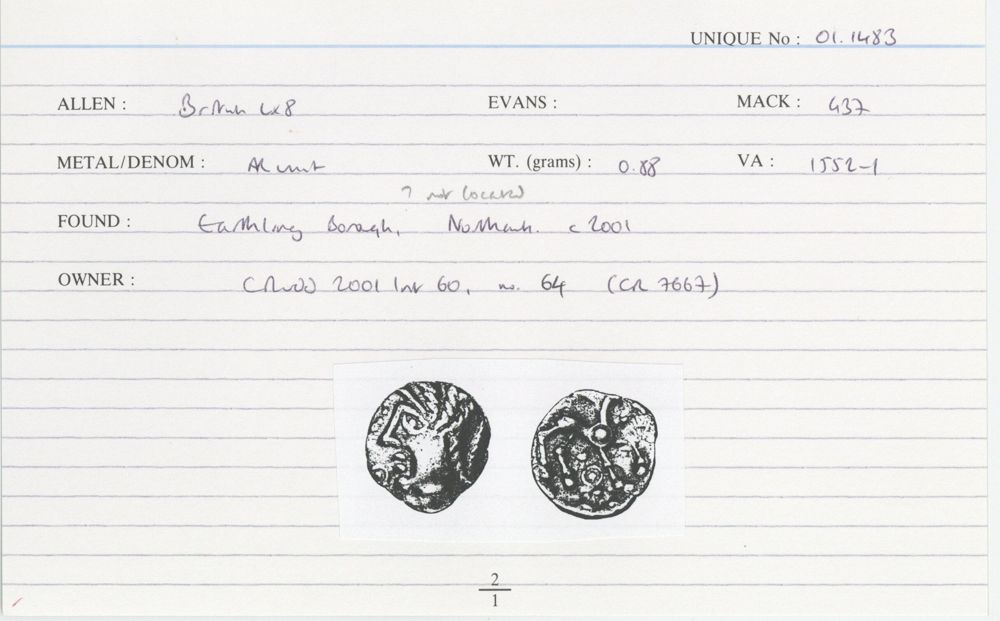 UNIQUE No : 01.1483
ALLEN : British Lx8 EVANS : MACK : 437
METAL/DENOM : AR unit WT. (grams) : 0.88 VA : 1552-1
? not located
FOUND : Earthling Borough, Northants. c 2001
OWNER : 2001 60, no. 64 (CR 7667)
2
1